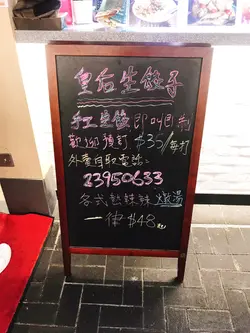 皇后生餃子
手工生餃即叫即制
歡迎預訂 $35/每打
外賣自取電話:
23950633
各式 燉湯
一律 $48